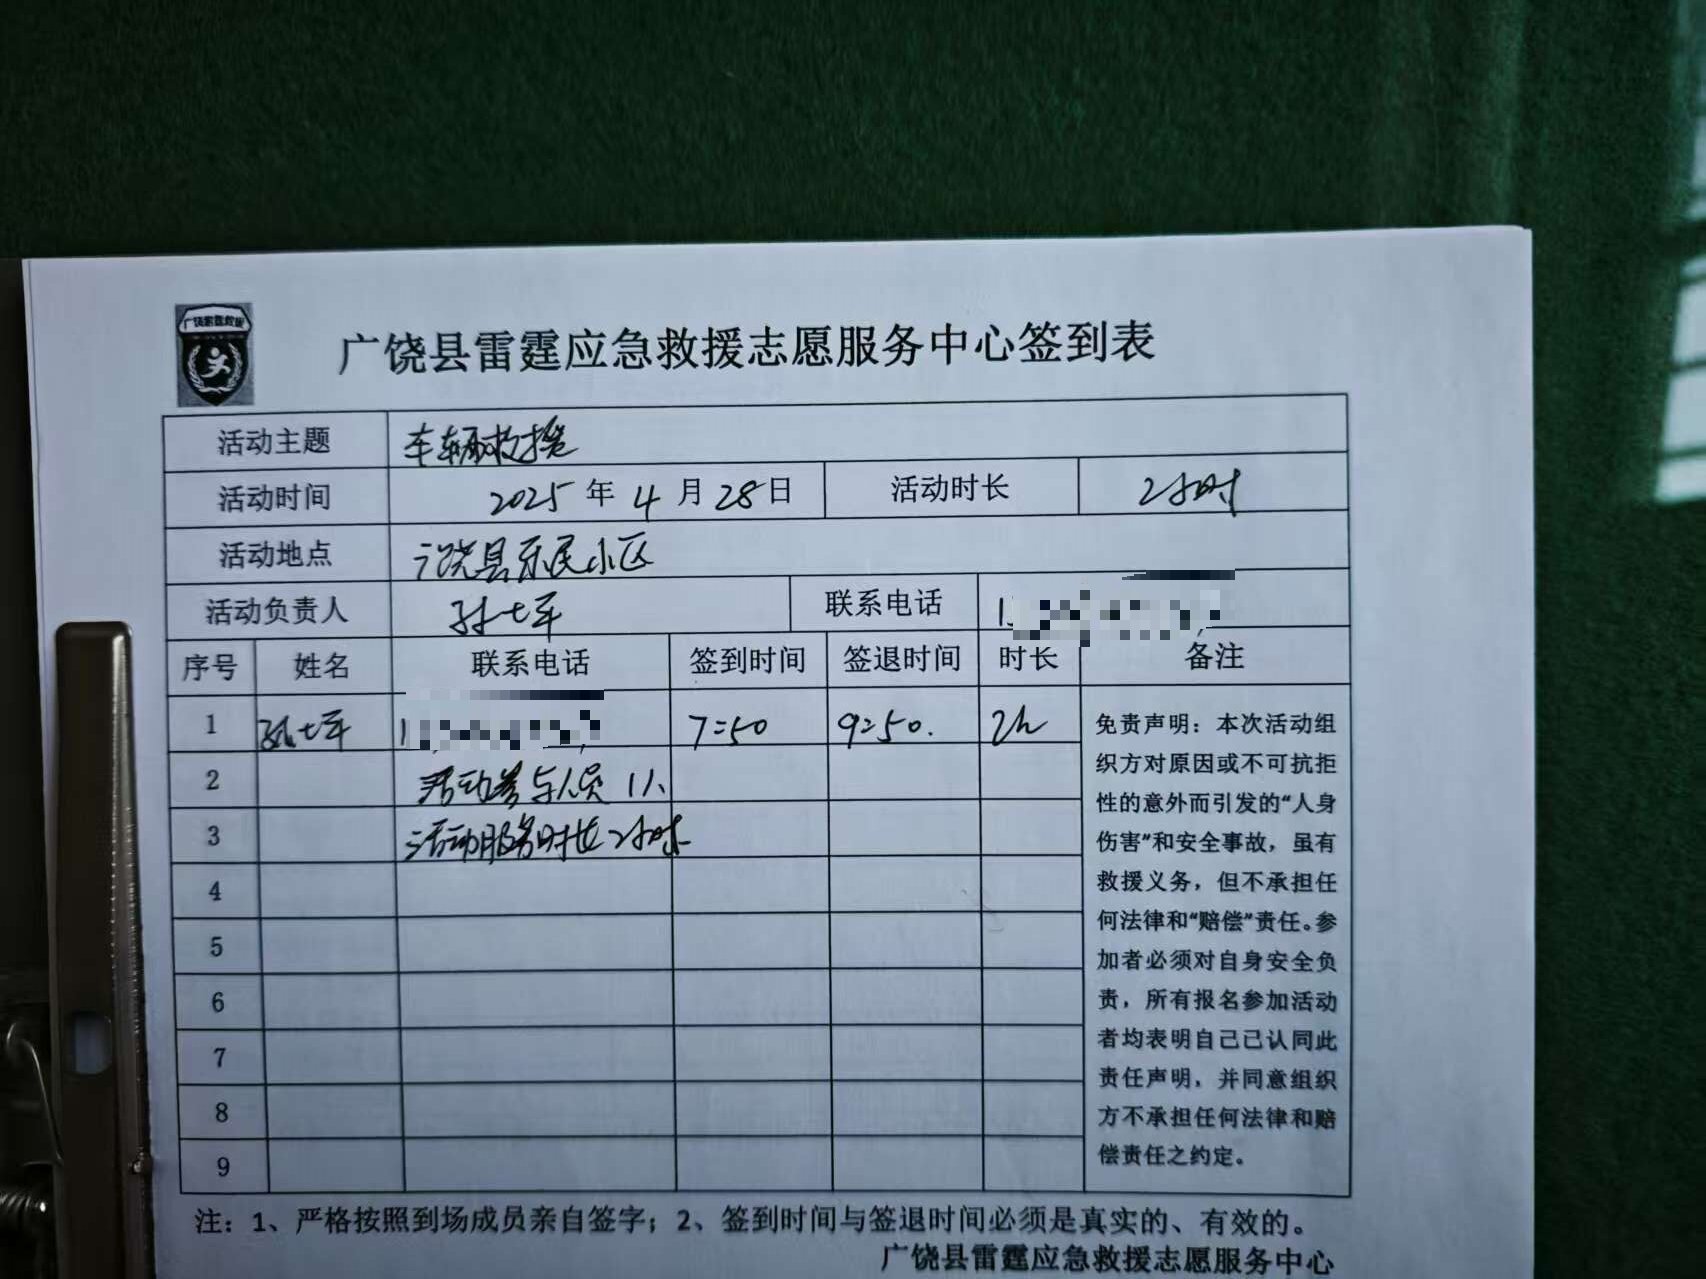 广饶雷霆救援
广饶县雷霆应急救援志愿服务中心签到表
活动主题 车辆救援
活动时间 2025年4月28日 活动时长 2小时
活动地点 广饶县乐民小区
活动负责人 孙七军 联系电话 1
序号 姓名 联系电话 签到时间 签退时间 时长 备注
1 孙七军 1 7:50 9:50. 2h
2 活动参与人员 1人
3 活动服务时长 2小时
4
5
6
7
8
9
免责声明：本次活动组
织方对原因或不可抗拒
性的意外而引发的“人身
伤害”和安全事故，虽有
救援义务，但不承担任
何法律和“赔偿”责任。参
加者必须对自身安全负
责，所有报名参加活动
者均表明自己已认同此
责任声明，并同意组织
方不承担任何法律和赔
偿责任之约定。
注：1、严格按照到场成员亲自签字；2、签到时间与签退时间必须是真实的、有效的。
广饶县雷霆应急救援志愿服务中心